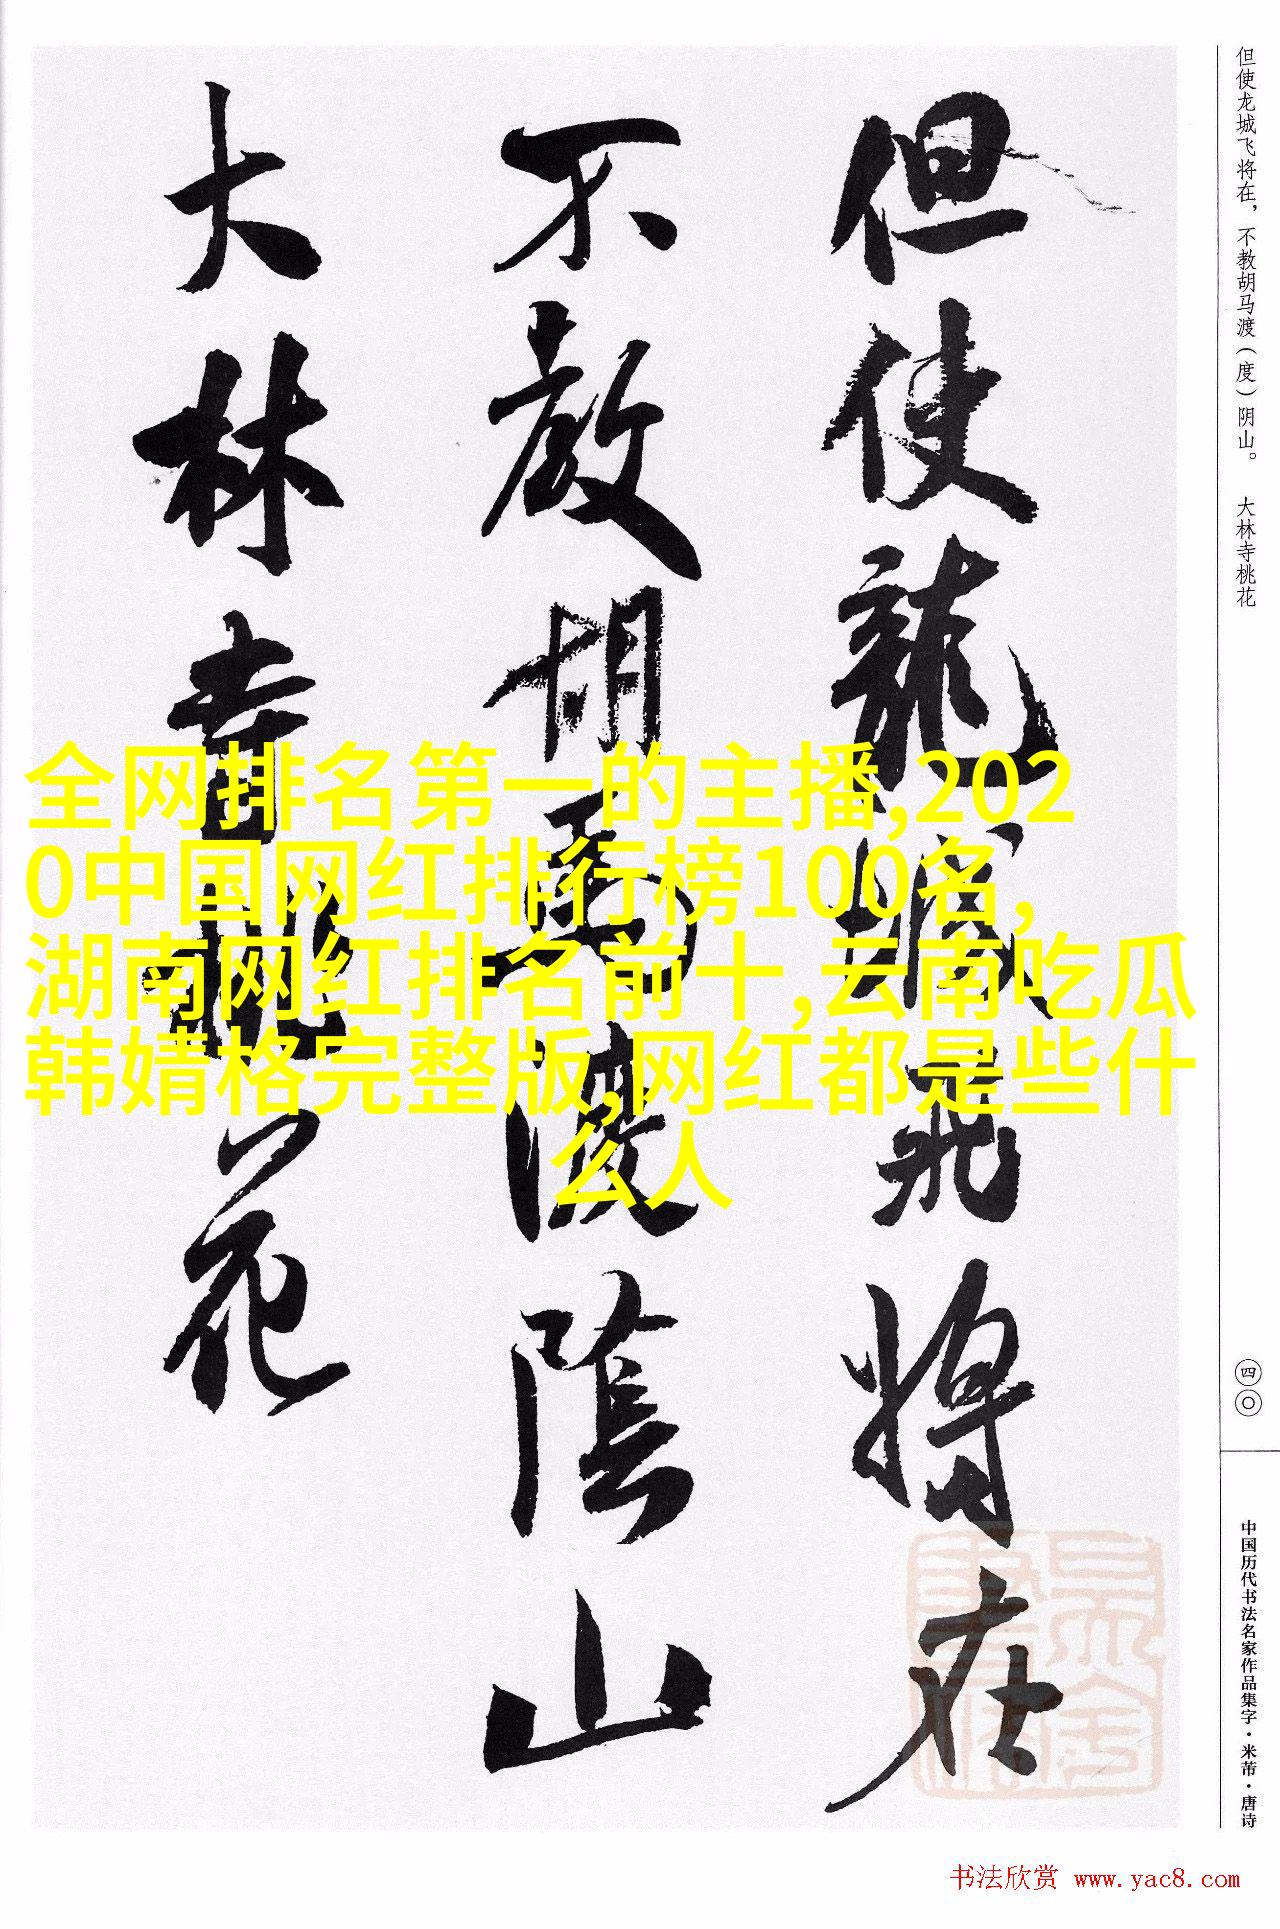 但使龙城飞将在，不教胡马渡（度）阴山。 大林寺桃花
但使龍城飛将在
不教胡馬渡陰山
大林寺桃花
全网排名第一的主播,202
0中国网红排行榜100名,
湖南网红排名前十,云南吃瓜
韩婧格完整版,网红都是些什
么人
四〇
中国历代书法名家作品集字·米芾·唐诗
书法欣赏 www.yac8.com